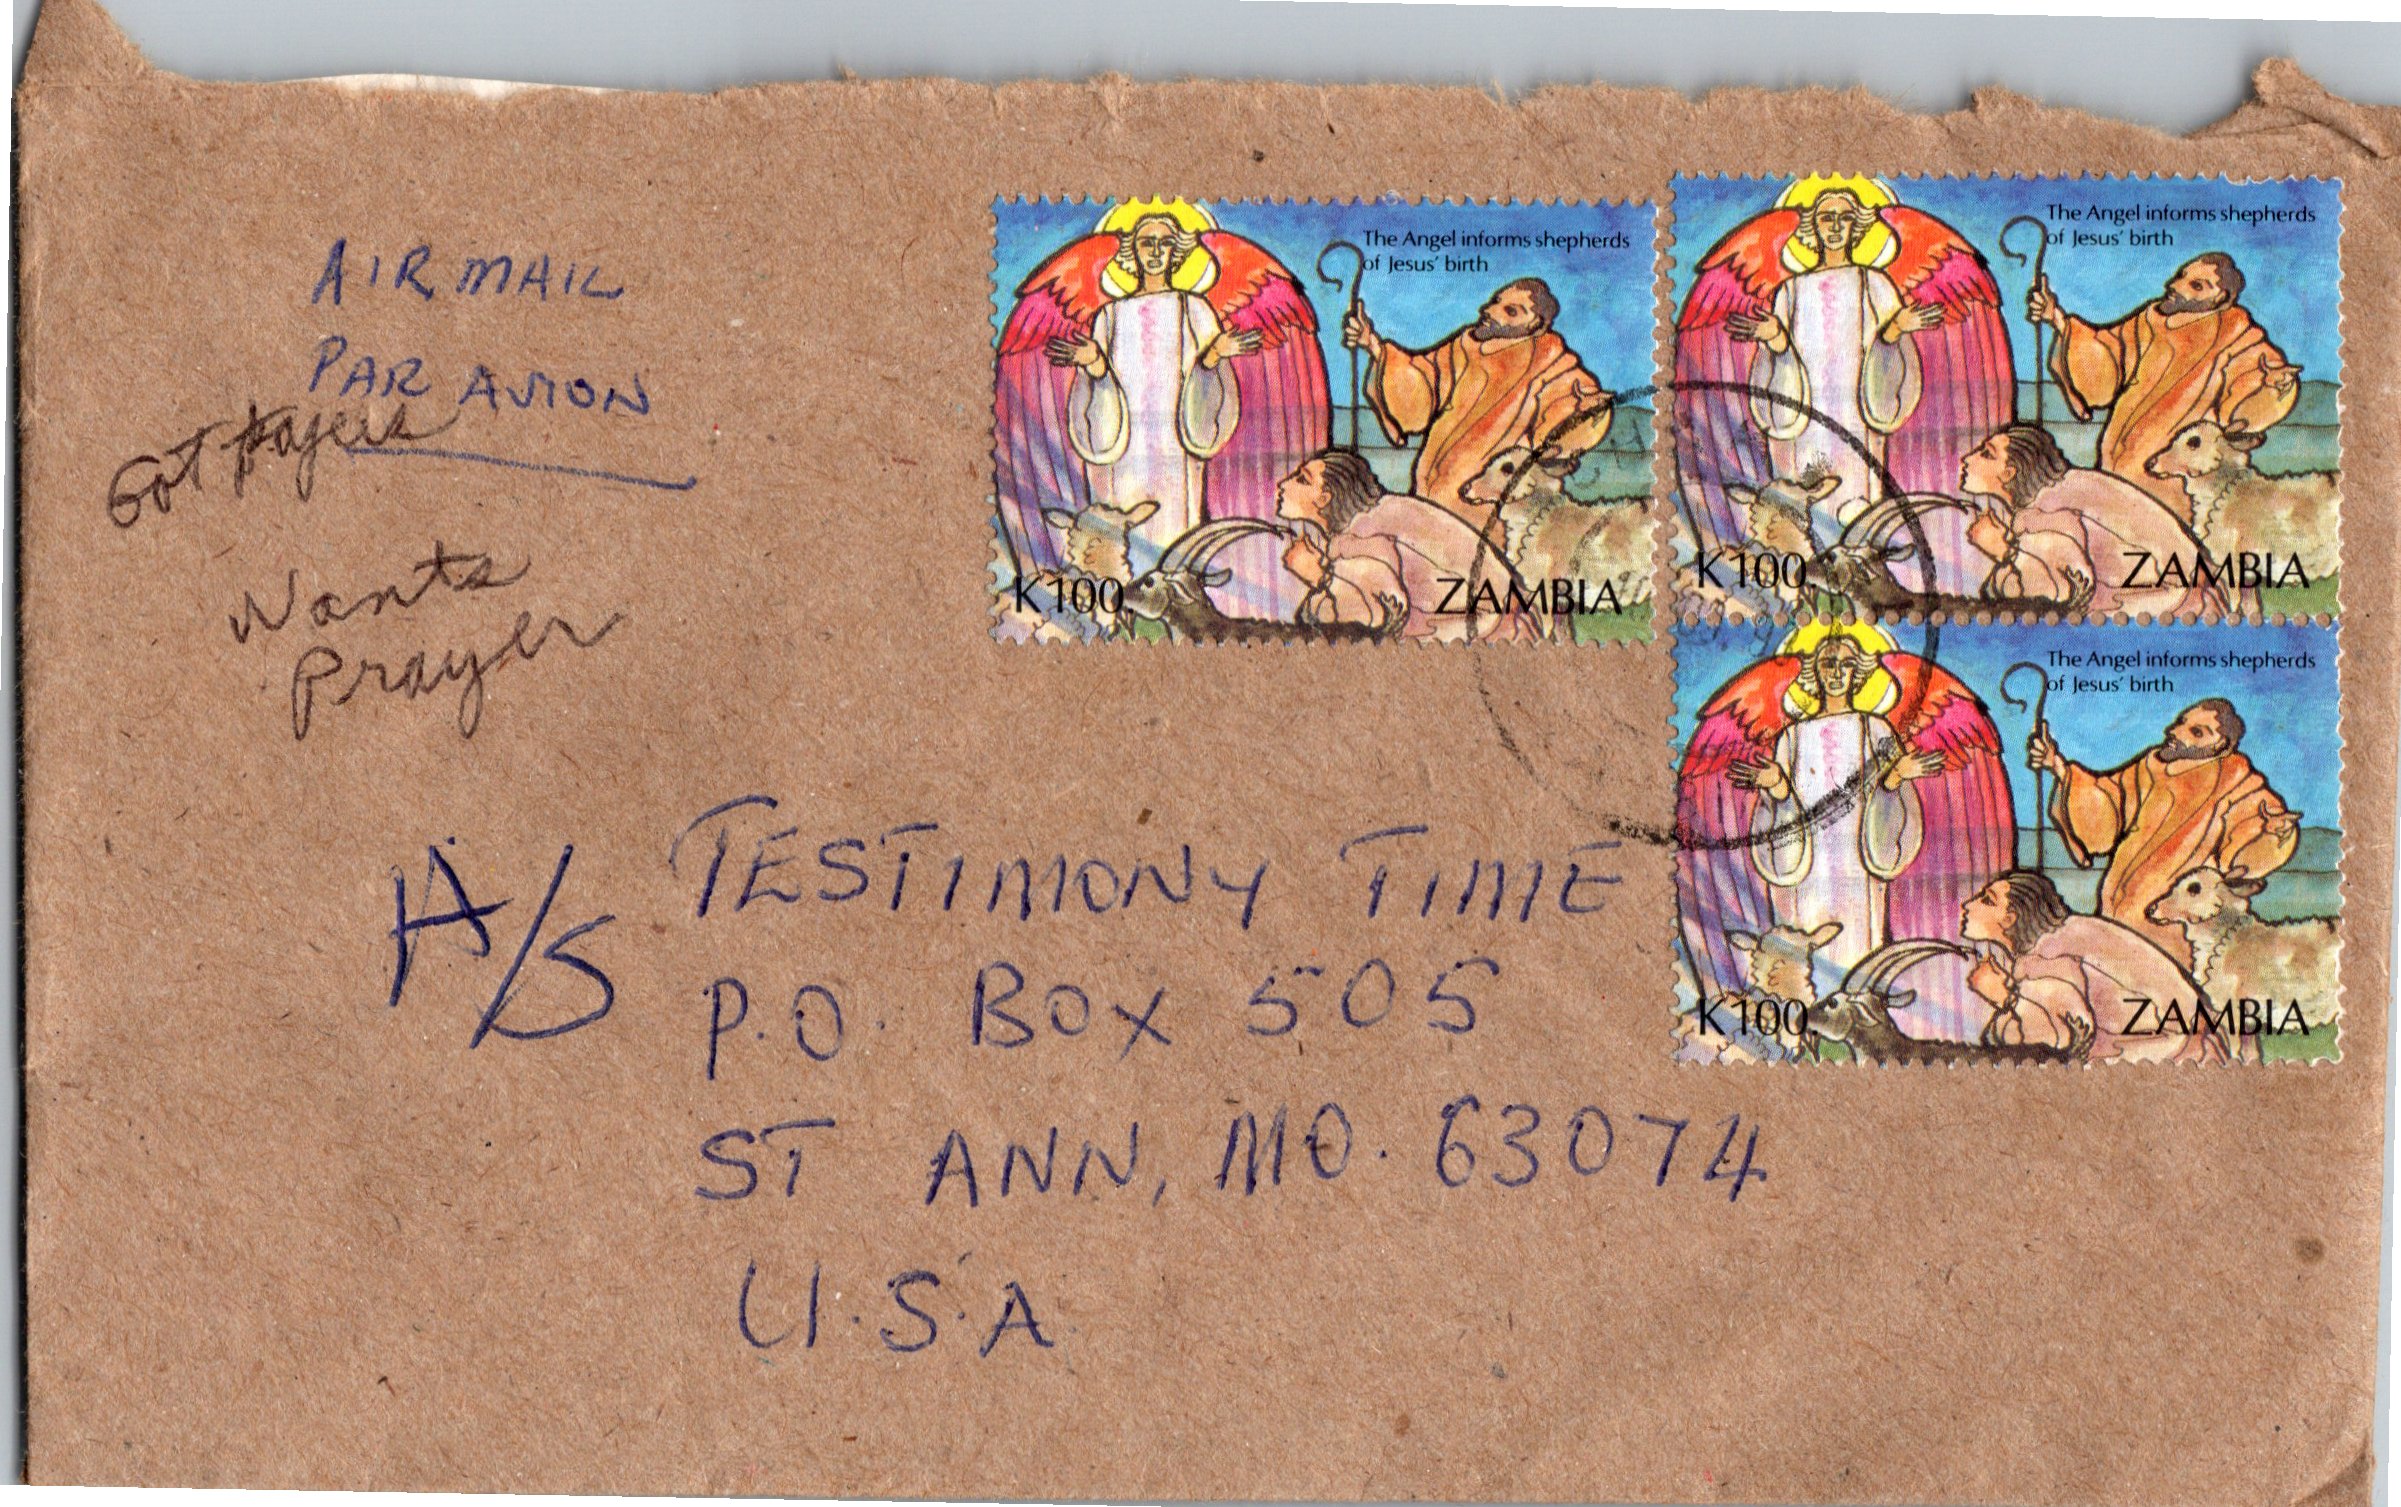 AIR MAIL
PAR AVION
Got papers
Wants
Prayer
The Angel informs shepherds
of Jesus' birth
K100.
ZAMBIA
The Angel informs shepherds
of Jesus' birth
K100.
ZAMBIA
The Angel informs shepherds
of Jesus' birth
K100.
ZAMBIA
A/S TESTIMONY TIME
P.O. BOX 505
ST ANN, MO. 63074
U.S.A.